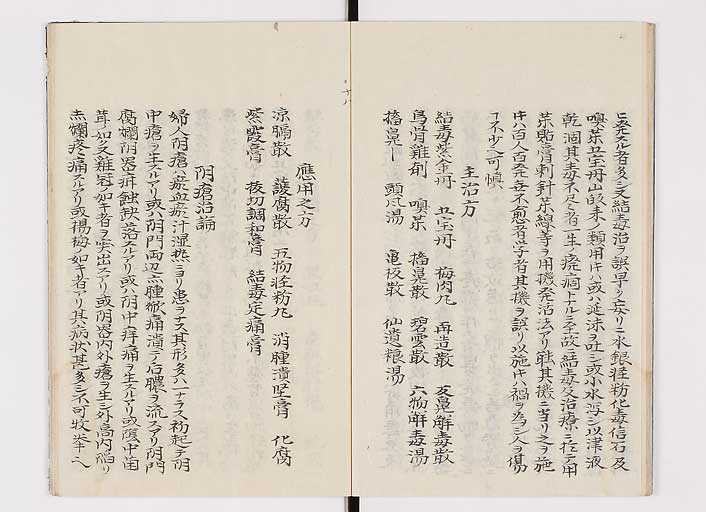 ニ発スル者多シ又結毒治ヲ誤早ク妄リニ水銀軽粉化毒信石及
嗅薬五宝丹山帰来ノ類用レハ或ハ延沫ヲ吐シ或小水瀉シ以津液
乾涸其毒不尽者一生ノ廃痼トナルニ至故ニ結毒及治療ニ於テ甲
薬貼膏刺針薬線等ヲ用機発活法アリ能其機ニ当リ之ヲ施
ハ八百人百発無不愈者学者其機ヲ誤リ以施ハ禍ヲ為シ人ヲ傷
コ不少可慎
主治方
結毒紫金丹 五宝丹 梅肉丸 再造散 及鼻解毒散
烏骨雞劑 嗅薬 搐鼻散 碧雲散 六物解毒湯
搐鼻一 頭風湯 亀板散 仙遺粮湯
應用之方
凉膈散 護腐散 五物軽粉丸 消腫潰堅膏 化腐
紫霞膏 抜功調和膏 結毒定痛膏
阴瘡治論
婦人阴瘡ハ瘀血瘀汁湿热ニヨリ患ヲナス其形多ハ一ナラス初起テ阴
中瘡ヲ生スルアリ或ハ阴門両辺ニ腫焮痛潰テ后膿ヲ流スアリ阴門
腐爛阴器掛蝕缺落スルアリ或ハ阴中痒痛ヲ生スルアリ或腐中菌
茸ノ如ク又雞冠ノ如キ者ヲ突出スアリ或阴器内外瘡ヲ生シ外高内陥リ
赤爛疼痛スルアリ或楊梅ノ如キ者アリ其ハ病状甚多シ不可枚挙